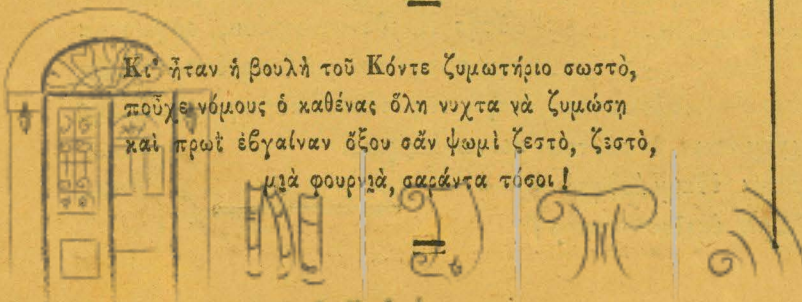 Κι' ἦταν ἡ βουλὴ τοῦ Κόντε ζυμωτήριο σωστὸ,
ποὖχε νόμους ὁ καθένας ὅλη νυχτα νὰ ζυμώσῃ
καὶ πρωῒ ἐβγαίναν ὄξου σἂν ψωμὶ ζεστὸ, ζεστὸ,
μιὰ φουρνιὰ, σαράντα τόσοι!